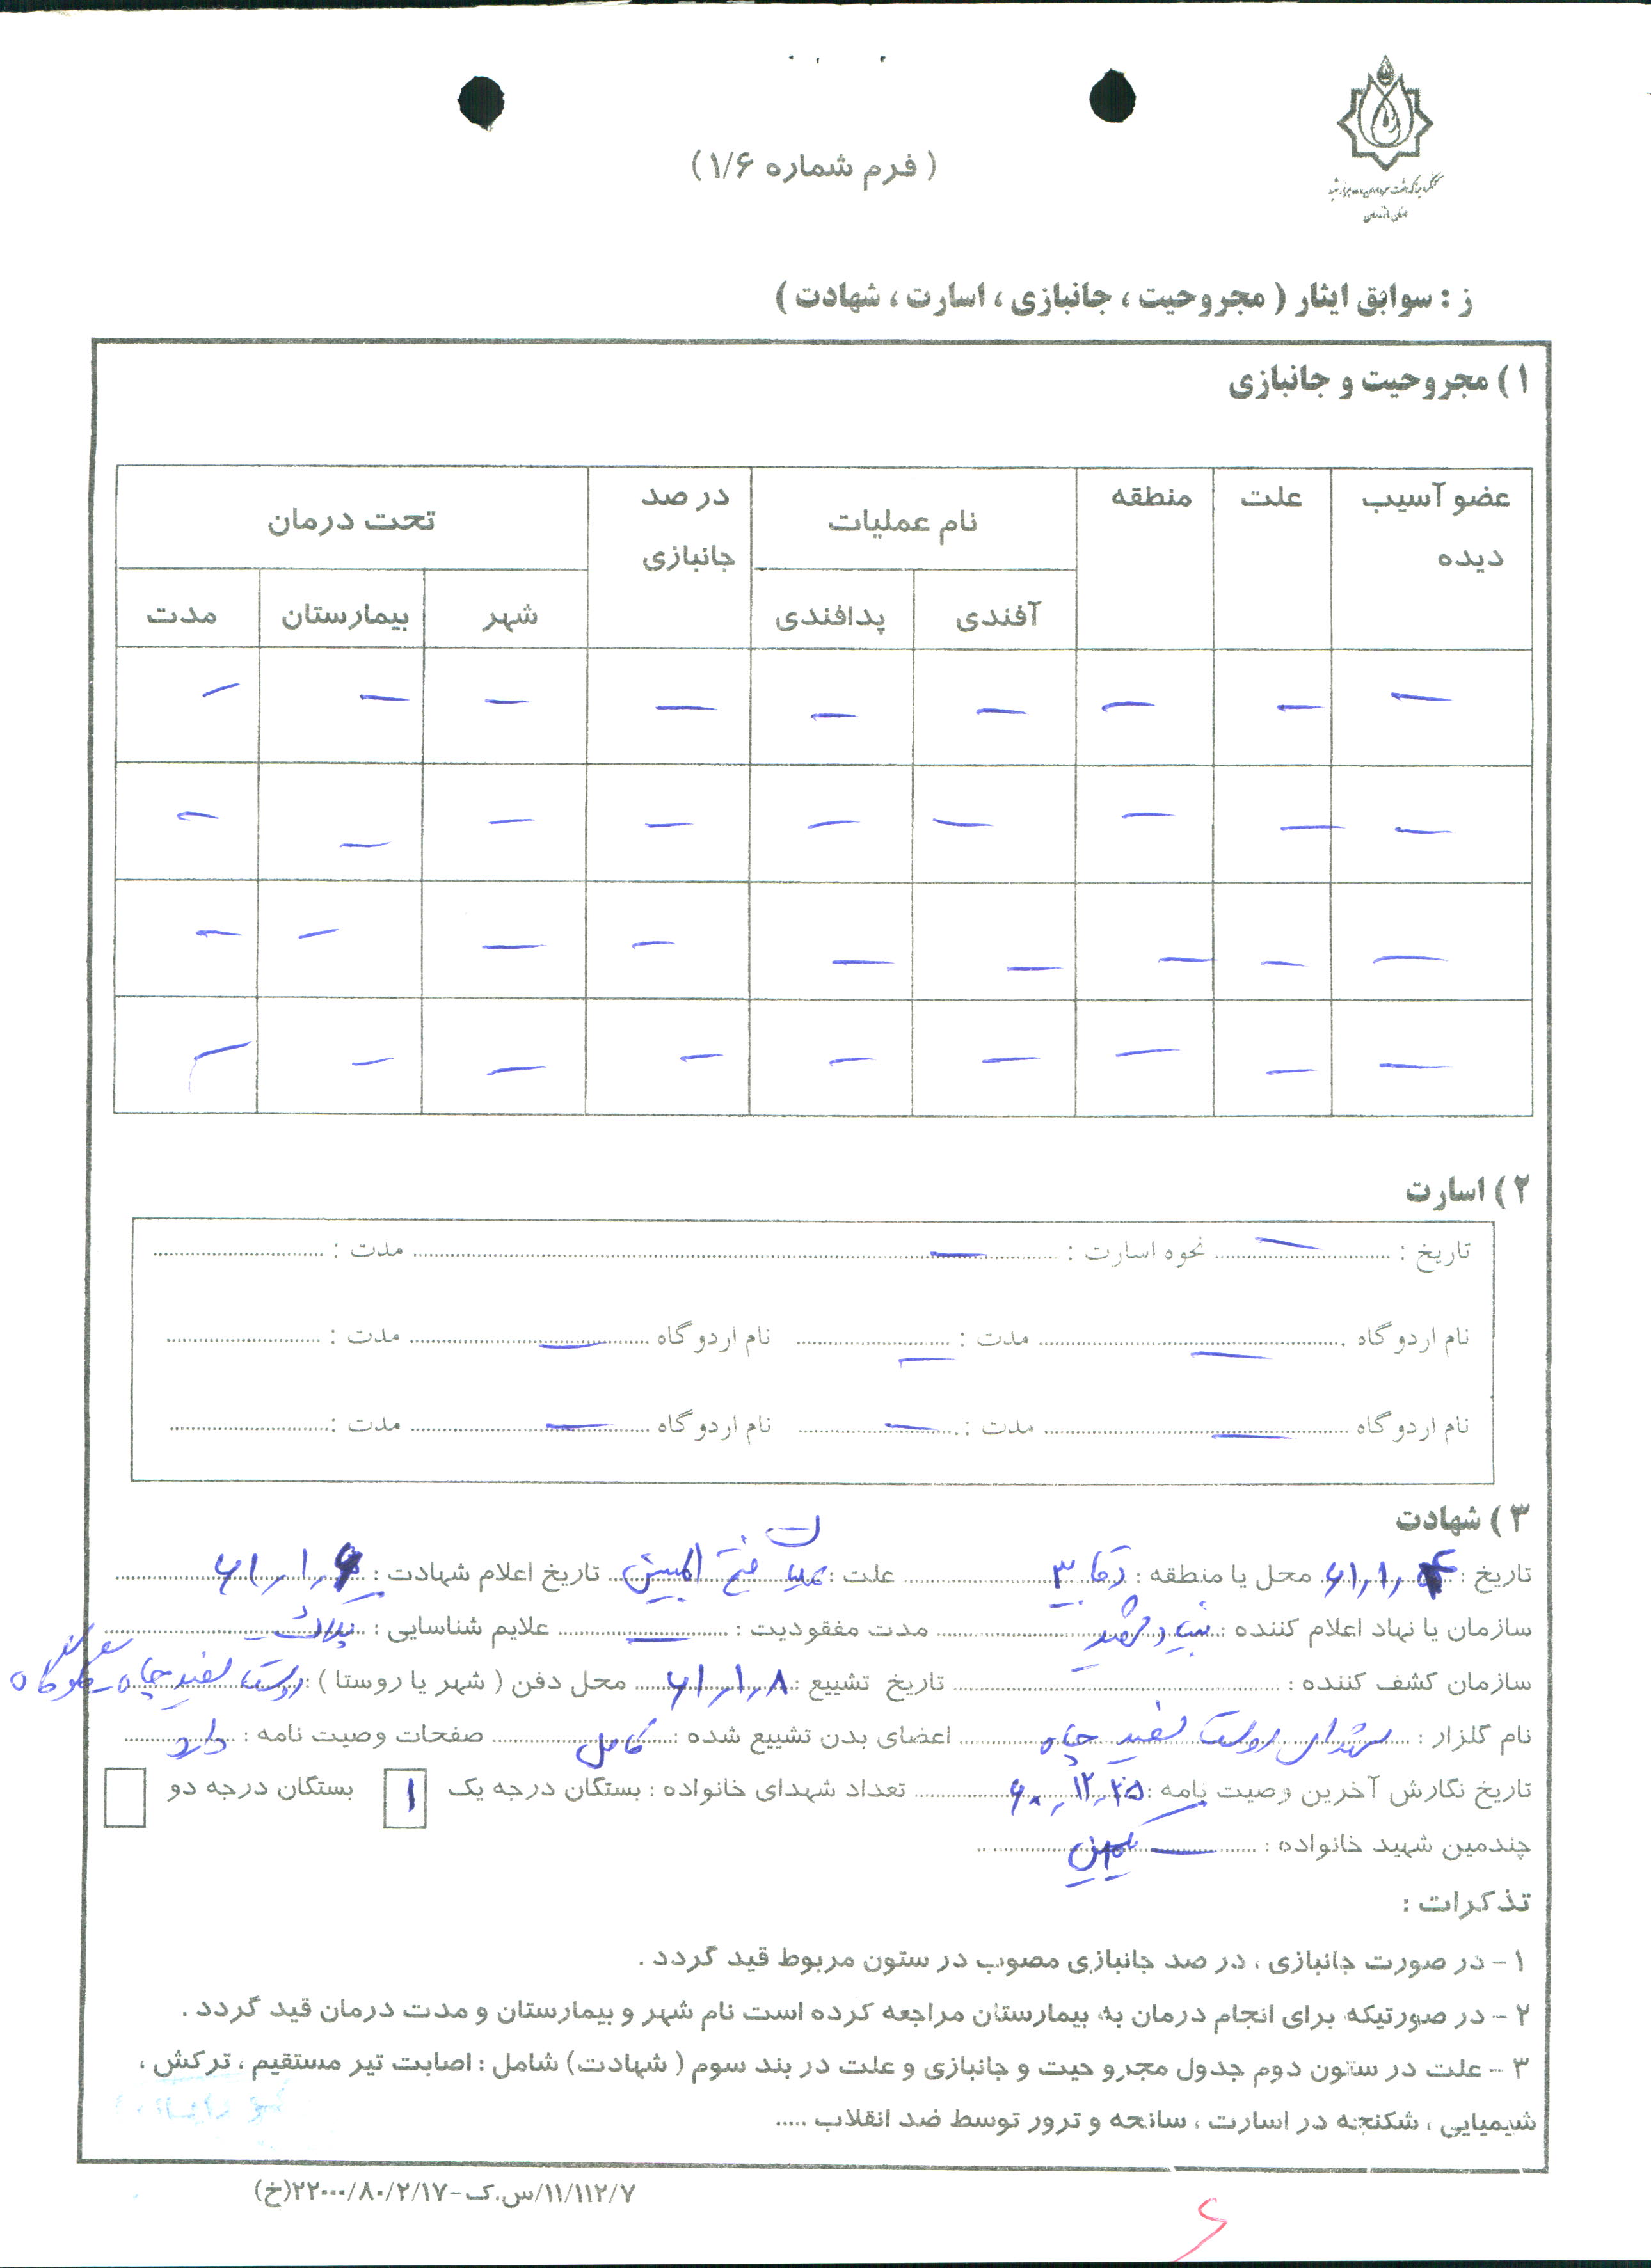 ( فرم شماره ۱/۶ )
ز : سوابق ایثار ( مجروحیت ، جانبازی ، اسارت ، شهادت )
۱ ) مجروحیت و جانبازی
عضو آسیب دیده علت منطقه نام عملیات در صد جانبازی تحت درمان
آفندی پدافندی شهر بیمارستان مدت
— — — — — — — — —
— — — — — — — — —
— — — — — — — — —
— — — — — — — — —
۲ ) اسارت
تاریخ : — نحوه اسارت : — مدت :
نام اردوگاه — مدت : — نام اردوگاه — مدت :
نام اردوگاه — مدت : — نام اردوگاه — مدت :
۳ ) شهادت
تاریخ : ۶۱,۱,۴ محل یا منطقه : ۳ علت : عملیات فتح المبین تاریخ اعلام شهادت : ۶۱,۱,۶
سازمان یا نهاد اعلام کننده : بنیاد شهید مدت مفقودیت : — علایم شناسایی : پلاک
سازمان کشف کننده : تاریخ تشییع : ۶۱,۱,۸ محل دفن ( شهر یا روستا ) : روستای سفید چاه - گلوگاه
نام گلزار : شهدای روستای سفید چاه اعضای بدن تشییع شده : کامل صفحات وصیت نامه : دارد
تاریخ نگارش آخرین وصیت نامه : ۶۰,۱۲,۲۵ تعداد شهدای خانواده : بستگان درجه یک ۱ بستگان درجه دو
چندمین شهید خانواده :
تذکرات :
۱ – در صورت جانبازی ، در صد جانبازی مصوب در ستون مربوط قید گردد .
۲ – در صورتیکه برای انجام درمان به بیمارستان مراجعه کرده است نام شهر و بیمارستان و مدت درمان قید گردد .
۳ – علت در ستون دوم جدول مجروحیت و جانبازی و علت در بند سوم ( شهادت ) شامل : اصابت تیر مستقیم ، ترکش ،
شیمیایی ، شکنجه در اسارت ، سانحه و ترور توسط ضد انقلاب .....
۱۱/۱۱۲/۷/س.ک-۲۲۰۰۰/۸۰/۲/۱۷(خ)